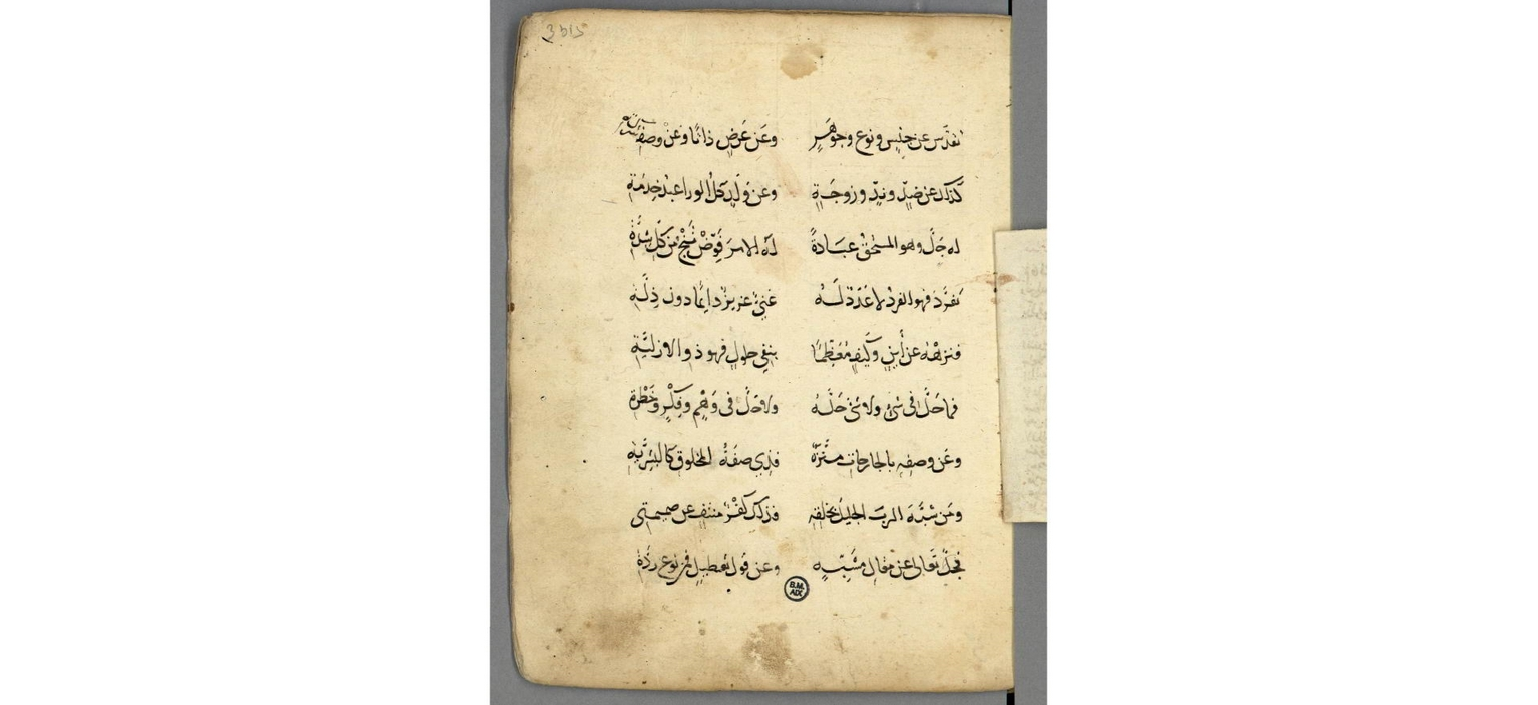 3515
تقدّس عن جنس ونوع وجوهر وعن عرض ذاتا وعن وصفة
كذلك عن ضدّ وندّ وزوجة وعن ولد كل الورا عبد خدمة
له جلّ وهو المستحق عبادة له الامر فوّض تنج من كل شدّة
تفرّد فهو الفرد لا عدد له غنيّ عزيز دايما دون ذلّة
فنزهه عن أين وكيف معظّما بنفي حلول فهو ذو الازليّة
فما حلّ في شئ ولا شئ حلّه ولا حلّ في وهم وفكر وخطرة
وعن وصفه بالجارحات منزّه فذي صفة المخلوق كالبشريّة
ومن شبّه الرب الجليل بخلقه فذلك كفر منتف عن صميمتي
فجلّ تعالى عن مقال مشبّه وعن قول تعطيل فمن نوع ردّة
B.M. AIX